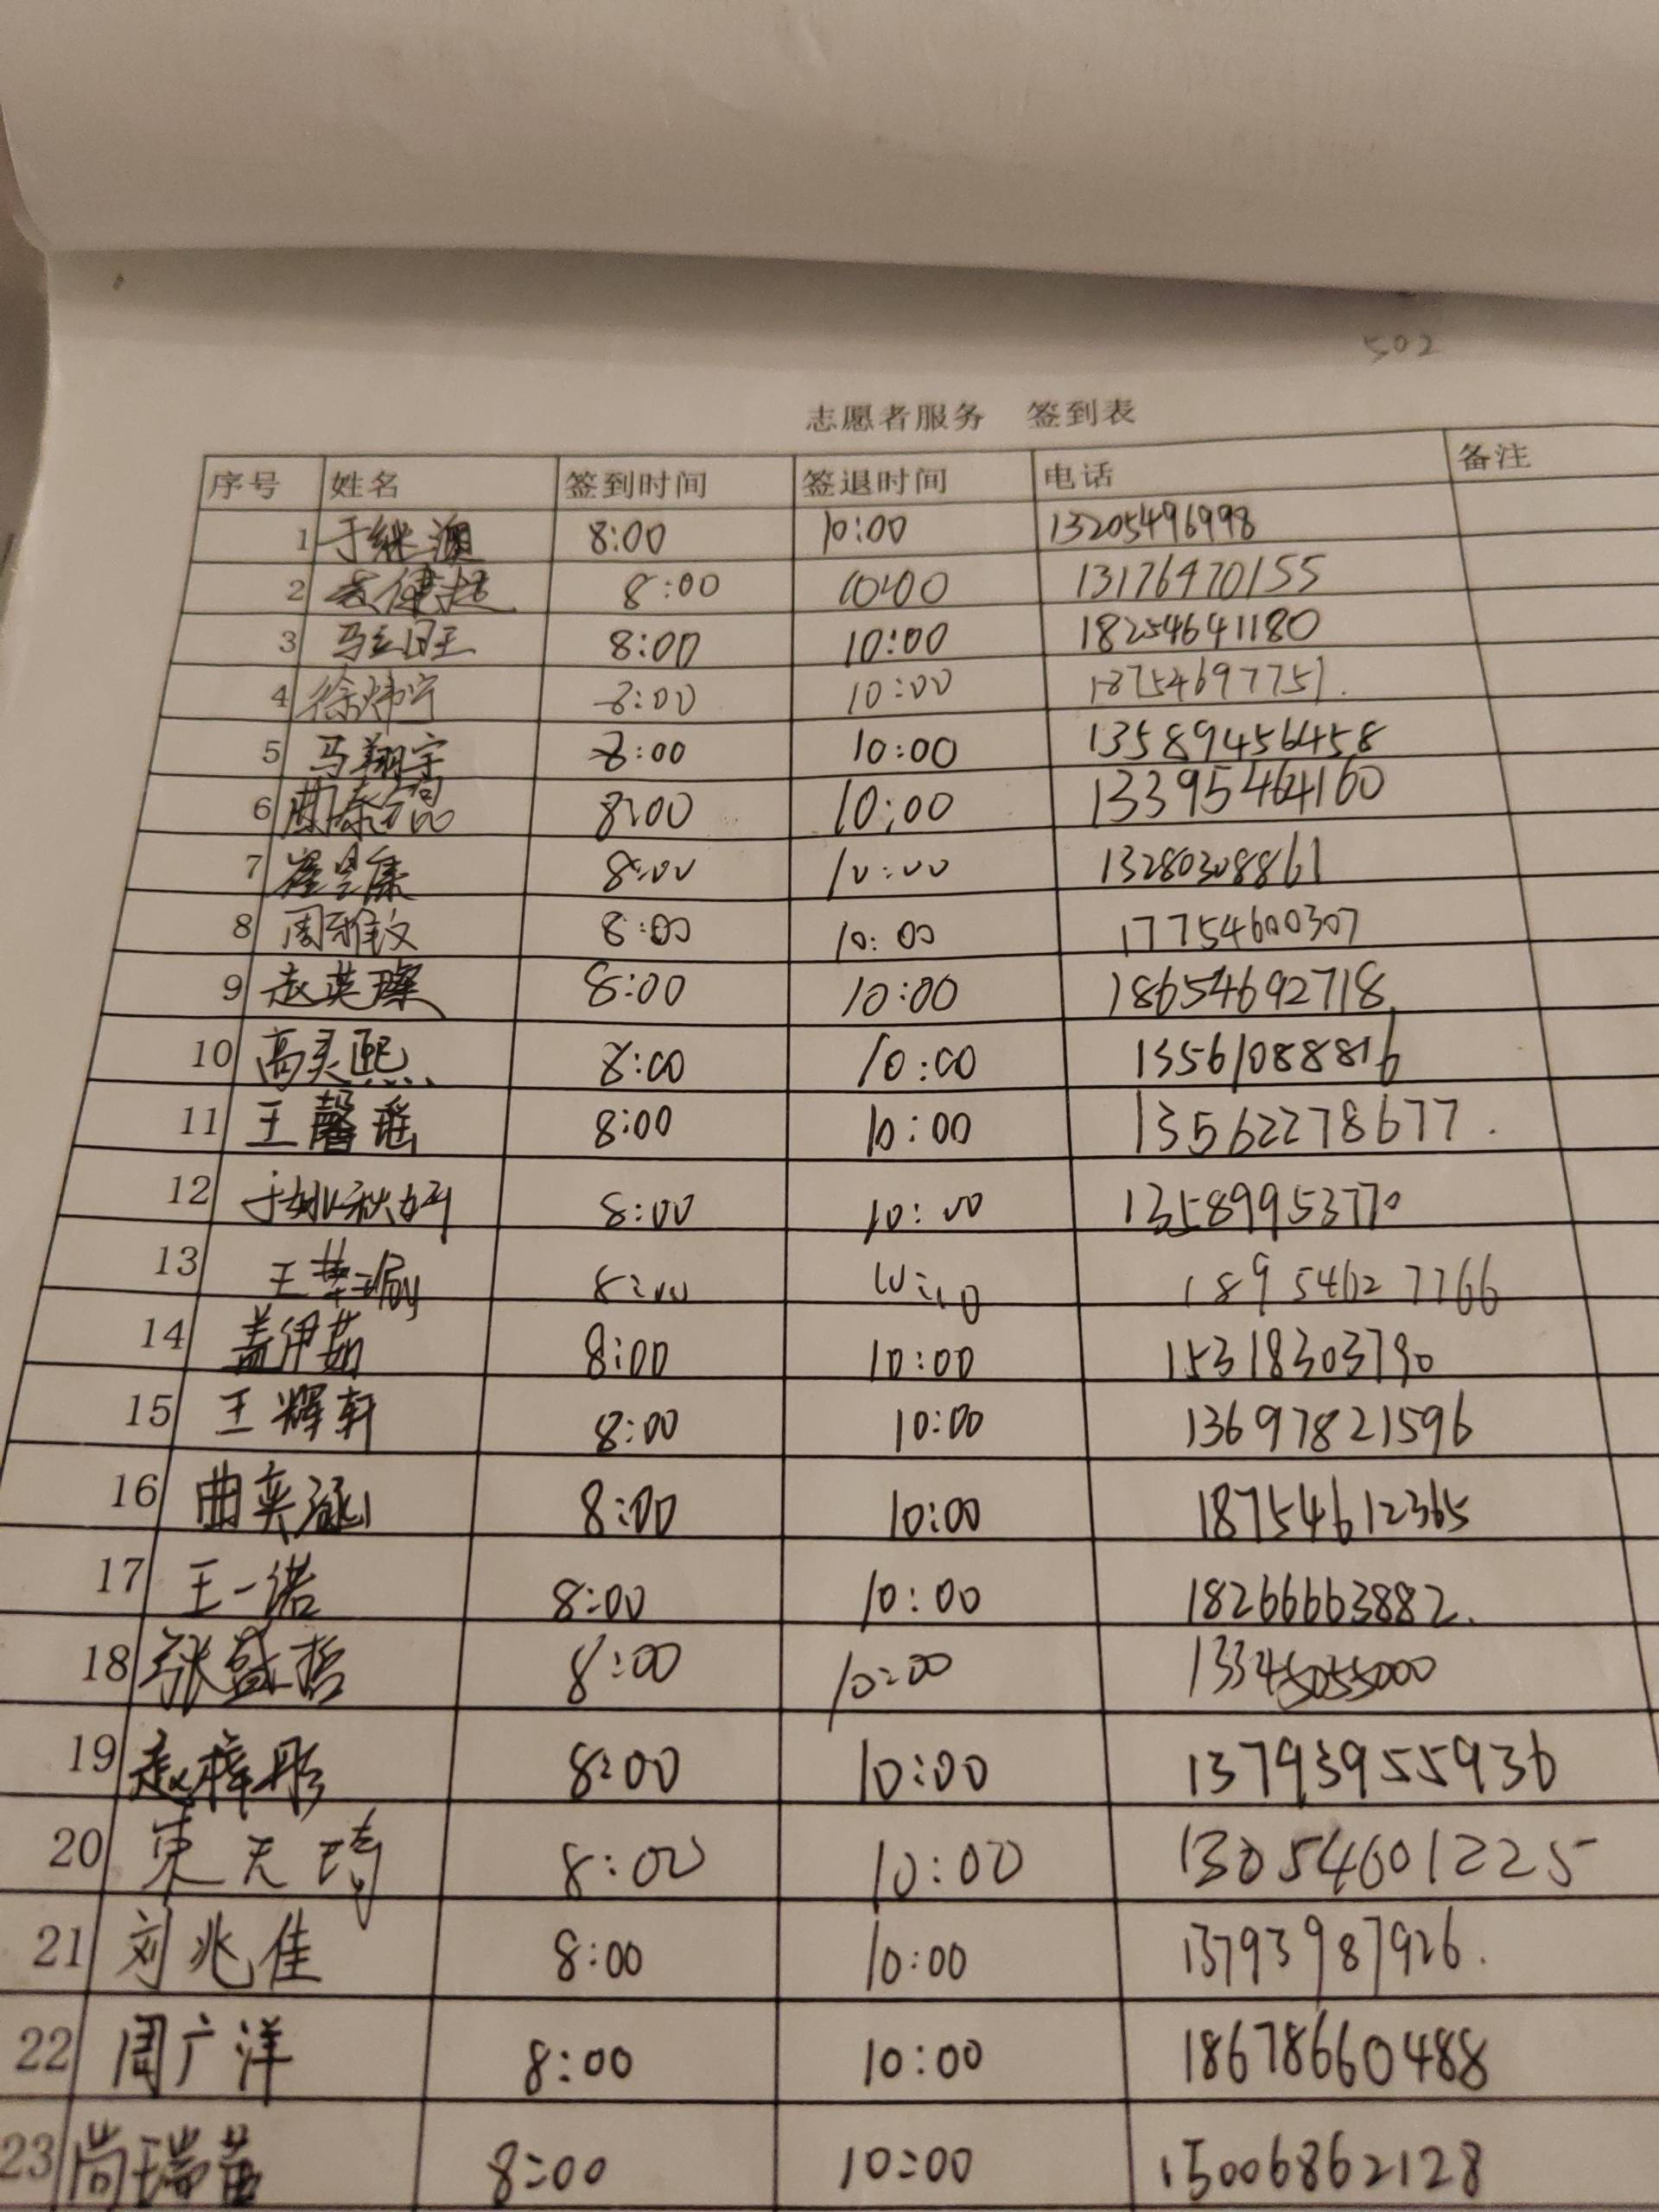 502
志愿者服务 签到表
序号 姓名 签到时间 签退时间 电话 备注
1 于继源 8:00 10:00 13205496998
2 8:00 10:00 13176470155
3 马云旺 8:00 10:00 18254641180
4 徐炜宁 8:00 10:00 18754697751.
5 马翔宇 8:00 10:00 13589456458
6 8:00 10:00 13395464160
7 崔昱康 8:00 10:00 13280308861
8 周雅文 8:00 10:00 17754600307
9 赵英璨 8:00 10:00 18654692718
10 高灵熙 8:00 10:00 13561088816
11 王馨瑶 8:00 10:00 13562278677.
12 于姚秋妤 8:00 10:00 13589953770
13 王 8:00 10:00 18954627766
14 盖伊茹 8:00 10:00 15318303790
15 王辉轩 8:00 10:00 13697821596
16 曲奕涵 8:00 10:00 18754612365
17 王一诺 8:00 10:00 18266663882.
18 张盛哲 8:00 10:00 13345055000
19 赵梓彤 8:00 10:00 13793955936
20 束天琦 8:00 10:00 13054601225
21 刘兆佳 8:00 10:00 13793987926.
22 周广洋 8:00 10:00 18678660488
23 尚瑞苗 8:00 10:00 15006862128